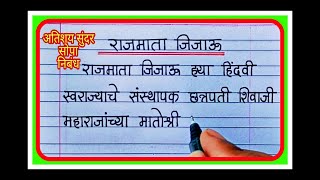 अतिशय सुंदर
सोपा
निबंध
राजमाता जिजाऊ
राजमाता जिजाऊ ह्या हिंदवी
स्वराज्याचे संस्थापक छत्रपती शिवाजी
महाराजांच्या मातोश्री